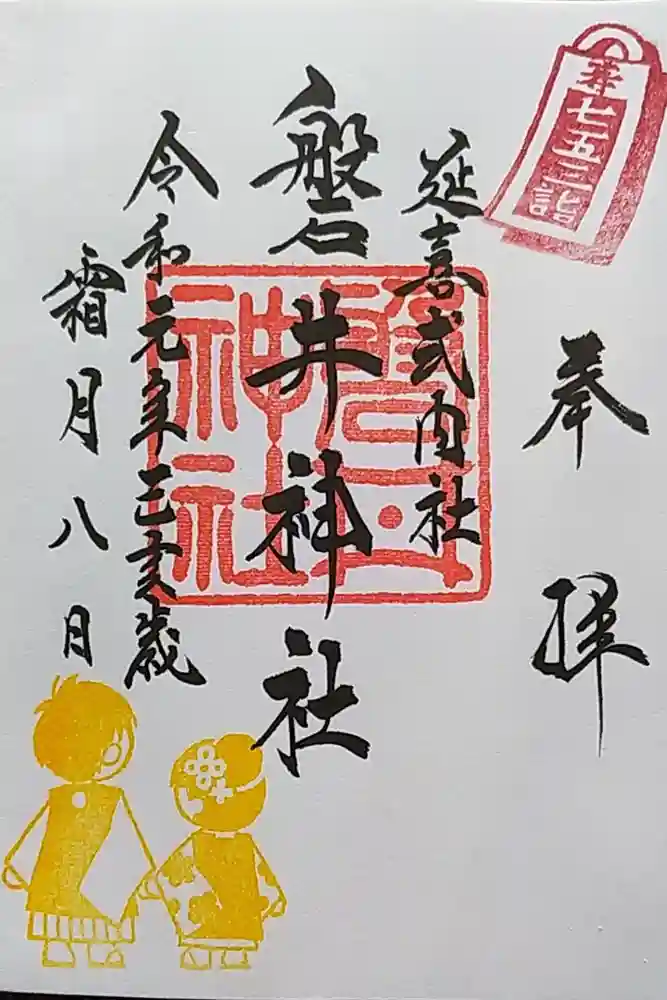 奉拝
延喜式内社
磐井神社
令和元年己亥歳
霜月八日
七五三詣
磐井神社